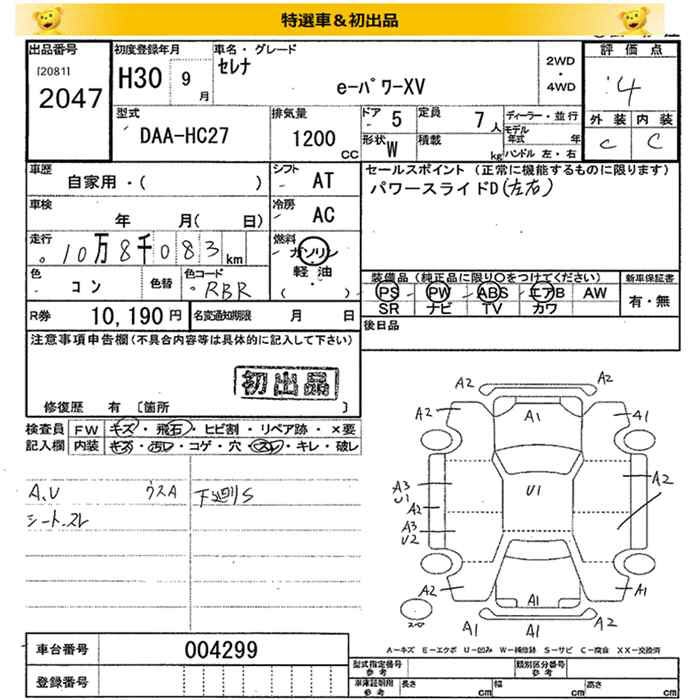 特選車＆初出品
出品番号 初度登録年月 車名・グレード 評価点
[2081] H30 9月 セレナ 2WD・4WD 4
2047 e-パワーXV
型式 排気量 ドア 5 定員 7人 ディーラー・並行 外装 内装
DAA-HC27 1200cc 形状 W 積載 kg モデル年式 年 C C
ハンドル 左・右
車歴 自家用・( ) シフト AT セールスポイント (正常に機能するものに限ります)
車検 年 月( 日) 冷房 AC パワースライドD(左右)
走行 10万8千083km 燃料 ガソリン・軽油 ( )
色 コン 色替 色コード RBR 装備品 (純正品に限り○をつけてください) 新車保証書
PS PW ABS エアB AW 有・無
SR ナビ TV カワ
R券 10,190円 名変通知期限 月 日 後日品
注意事項申告欄(不具合内容等は具体的に記入して下さい)
初出品
修復歴 有 [箇所 ]
検査員 FW キズ・飛石・ヒビ割・リペア跡・×要
記入欄 内装 キズ・汚レ・コゲ・穴・スレ・キレ・破レ
A,U ウスA 下廻りS
シート、スレ
A2 A2
A2 A1 A1
A3 U1 A2
U1
A2
A3
U2
A2 A1 A1
A1 A1 A2
車台番号 004299
登録番号
A－キズ E－エクボ U－凹み W－補修跡 S－サビ C－腐食 XX－交換済
型式指定番号 参考 類別区分番号 参考
車庫証明用 参考 長さ cm 幅 cm 高さ cm